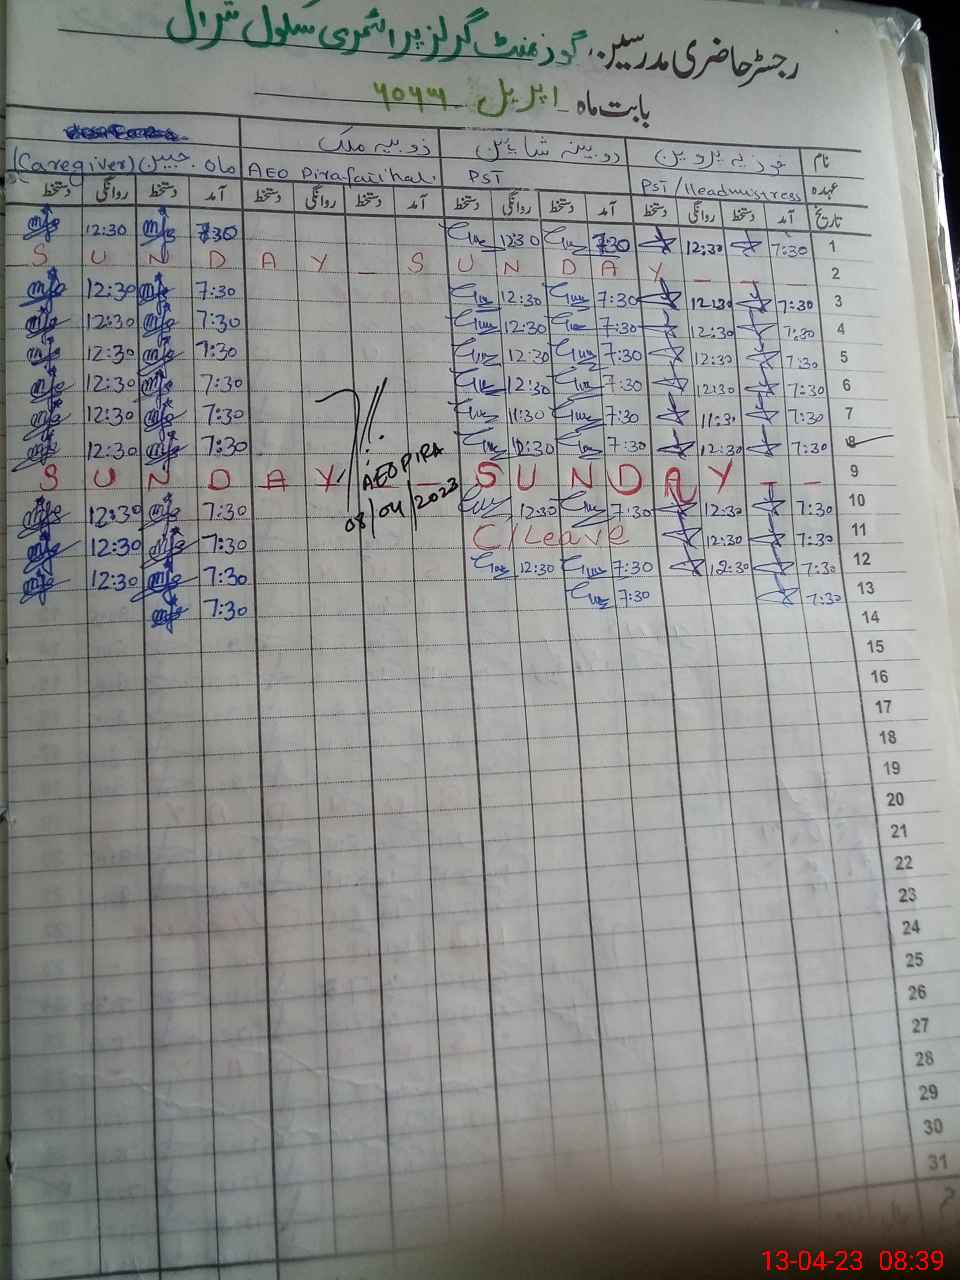 رجسٹر حاضری مدرسین گورنمنٹ گرلز پرائمری سکول ترال
بابت ماہ اپریل ۲۰۲۳
نام فوزیہ پروین روبینہ شاہین زوبیہ ملک ماہ جبین (Caregiver)
عہدہ PST/Headmistress PST AEO Pirafatihal
تاریخ آمد دستخط روانگی دستخط آمد دستخط روانگی دستخط آمد دستخط روانگی دستخط آمد دستخط روانگی دستخط
1 7:30 12:30 7:30 12:30 7:30 12:30
2 S U N D A Y _ S U N D A Y _ _ _
3 7:30 12:30 7:30 12:30 7:30 12:30
4 7:30 12:30 7:30 12:30 7:30 12:30
5 7:30 12:30 7:30 12:30 7:30 12:30
6 7:30 12:30 7:30 12:30 7:30 12:30
7 7:30 11:30 7:30 11:30 7:30 12:30
8 7:30 12:30 7:30 12:30 7:30 12:30
9 S U N D A Y _ S U N D A Y _ _
AEO PIRA
08/04/2023
10 7:30 12:30 7:30 12:30 7:30 12:30
11 7:30 12:30 C/Leave 7:30 12:30
12 7:30 12:30 7:30 12:30 7:30 12:30
13 7:30 7:30 7:30
14
15
16
17
18
19
20
21
22
23
24
25
26
27
28
29
30
31
13-04-23 08:39